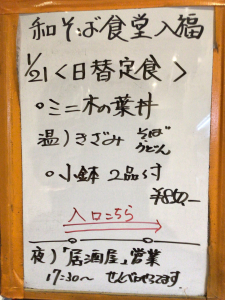 和そば食堂入福
1/21＜日替定食＞
○ミニ木の葉丼
温）きざみ そば うどん
○小鉢 2品付
¥850-
入口こちら
夜）「居酒屋」営業
17:30〜